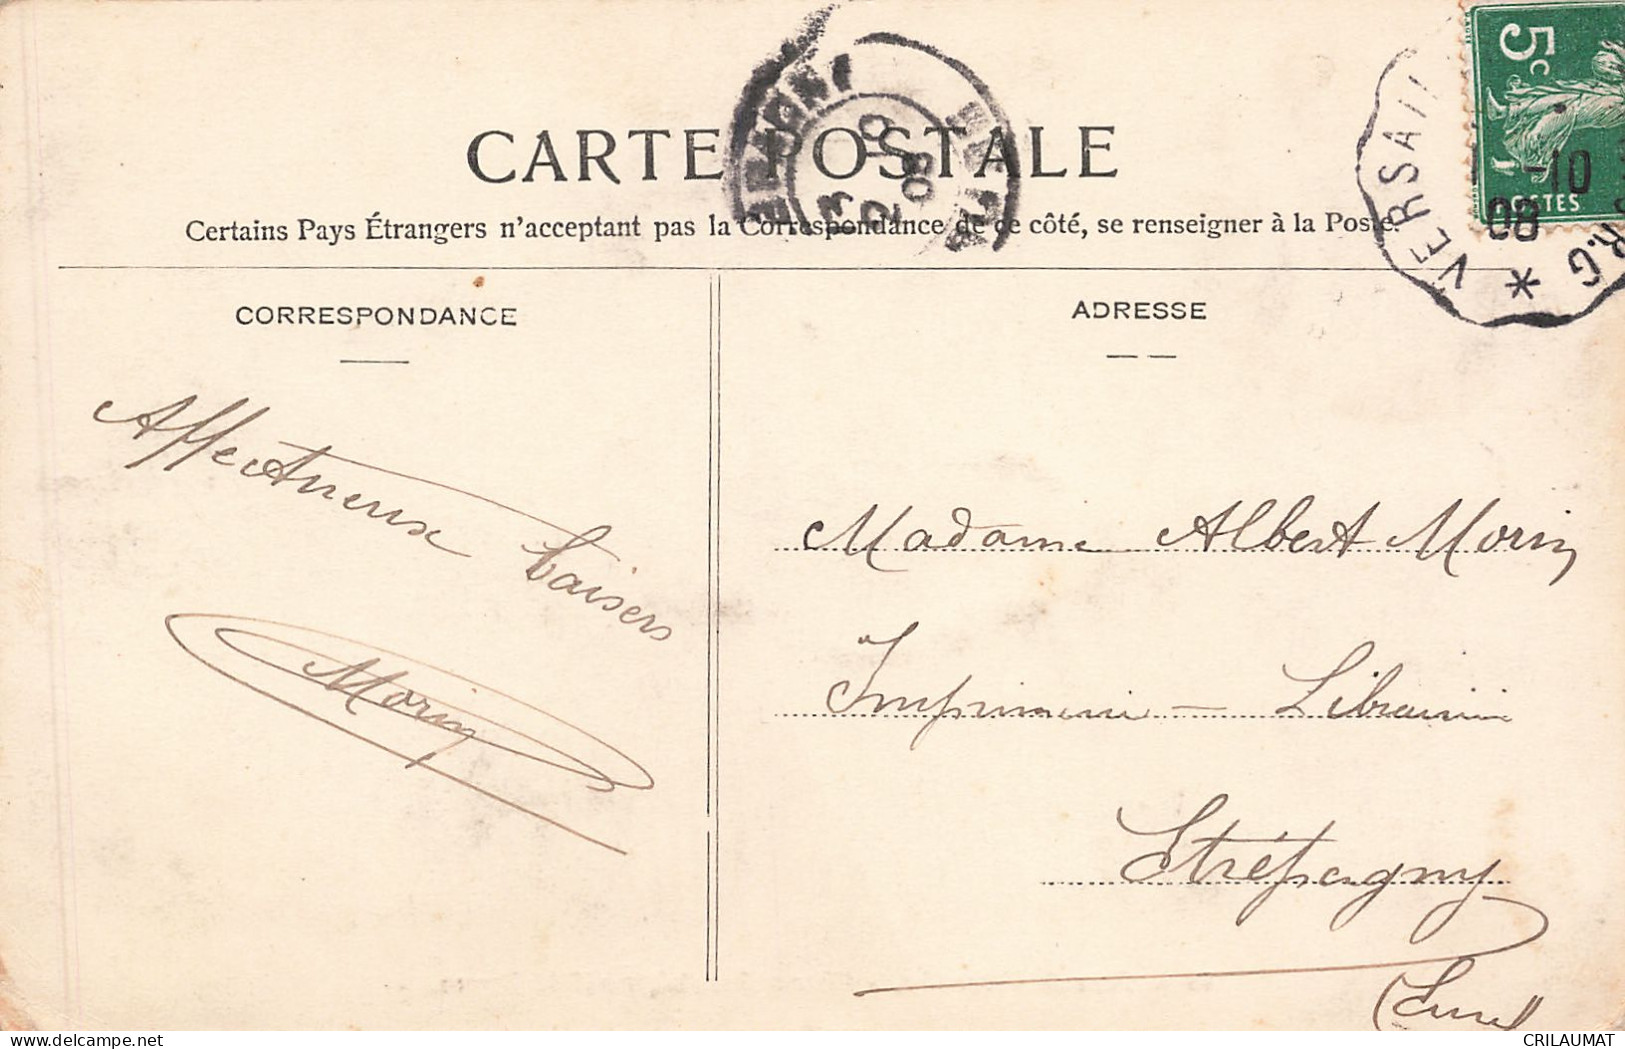 CARTE POSTALE
Certains Pays Étrangers n'acceptant pas la Correspondance de ce côté, se renseigner à la Poste.
5c
POSTES
VERSAIL
R.G
-10
08
CORRESPONDANCE
Affectueux baisers
Morin
ADRESSE
Madame Albert Morin
Imprimerie - Librairie
Étrépagny
(Eure)
CRILAUMAT